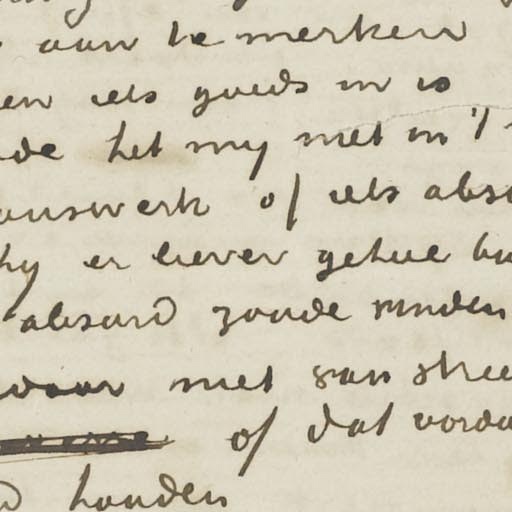 aan te merken
en iets goeds in is
de het my niet in 't
answerk of iets abs
hy er liever geheel bu
absurd zoude vinden
daar met van stree
of dat oordee
houden